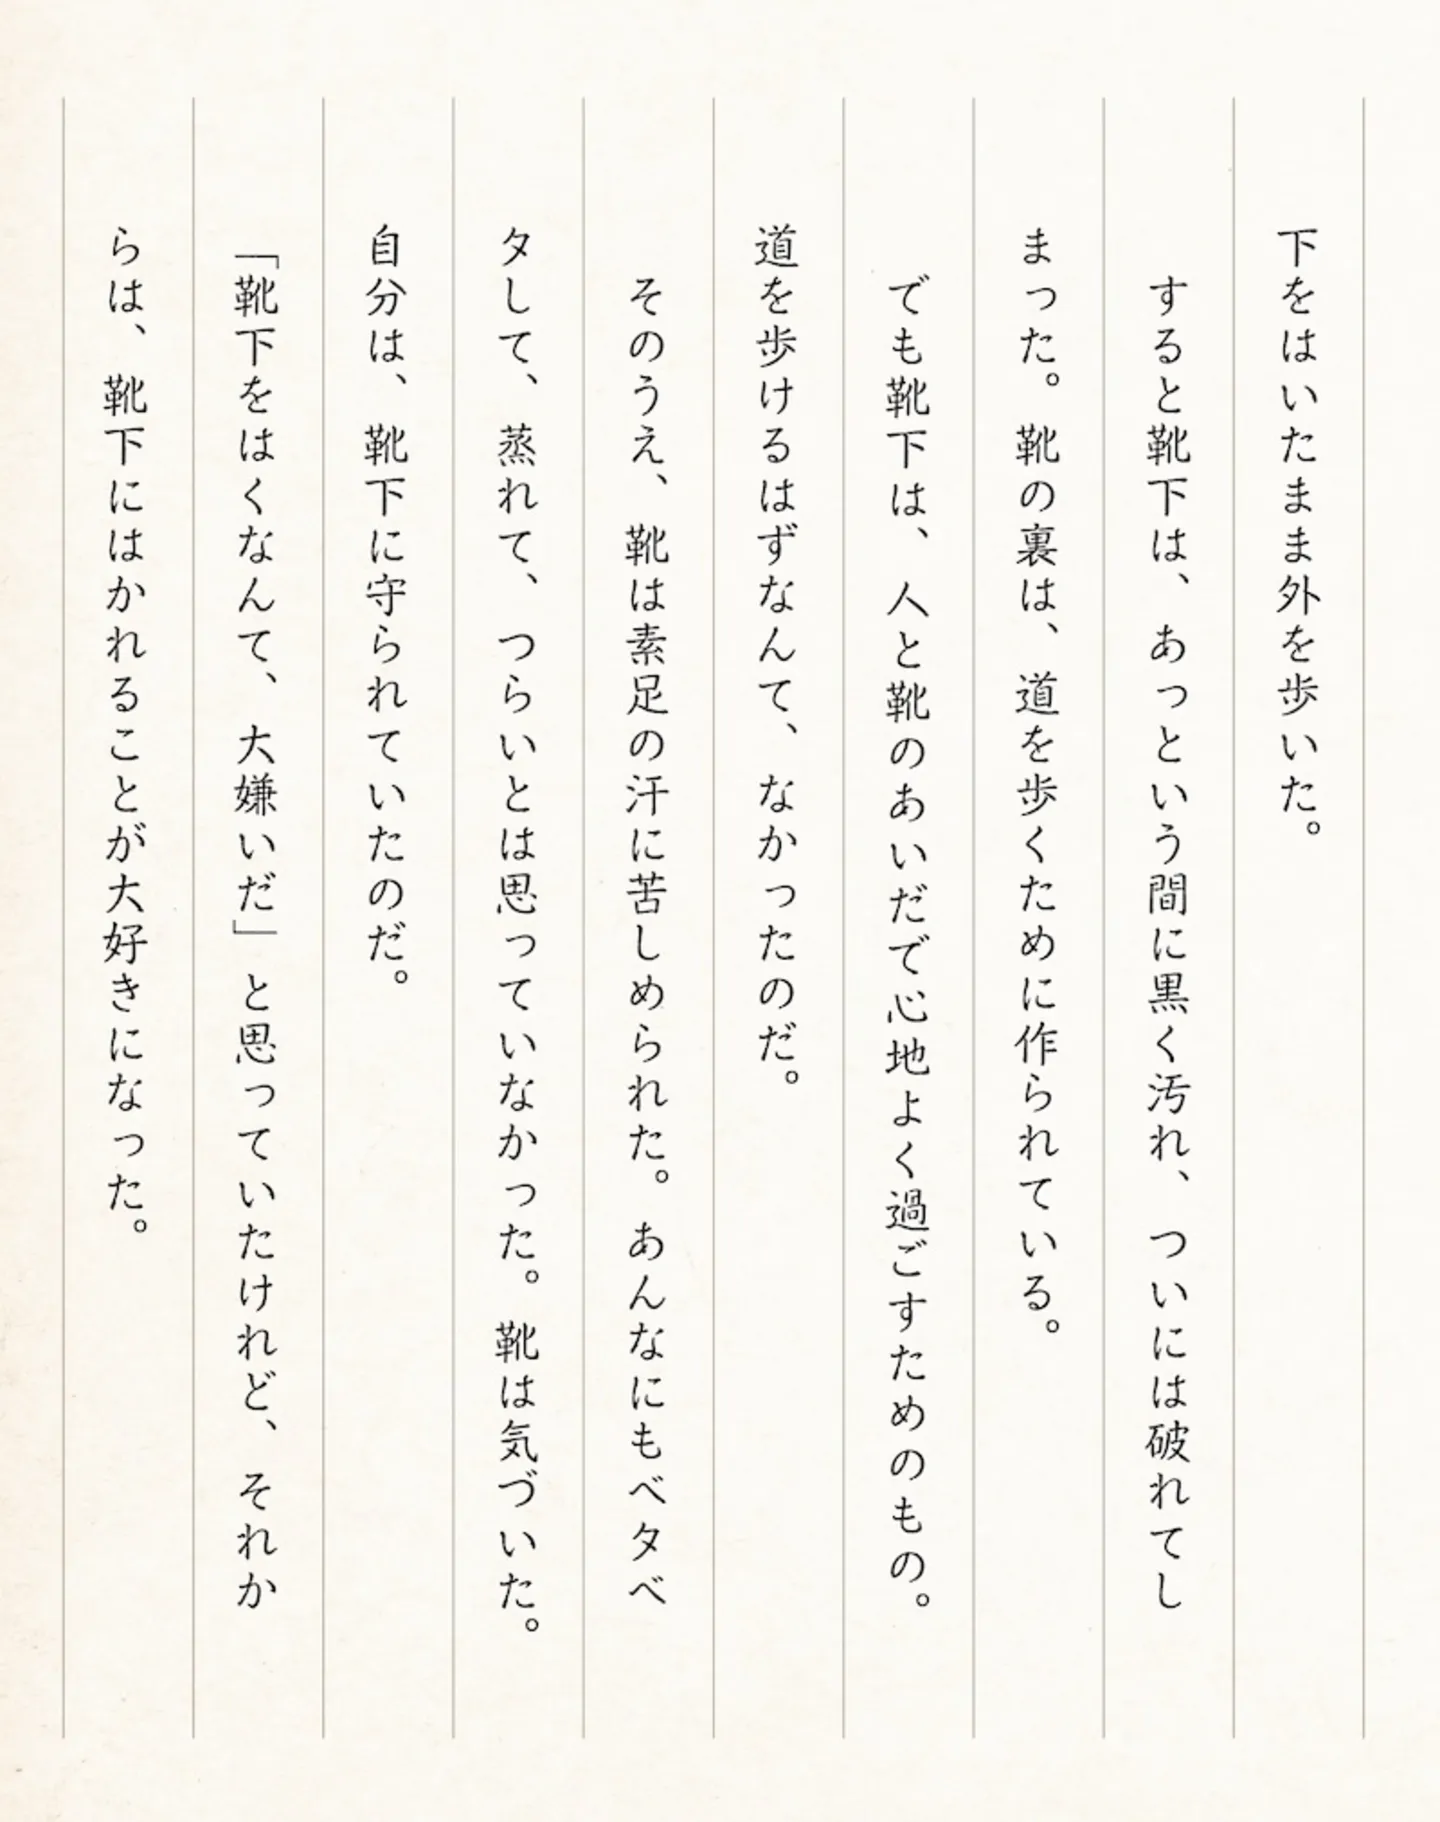 下をはいたまま外を歩いた。
　すると靴下は、あっという間に黒く汚れ、ついには破れてし
まった。靴の裏は、道を歩くために作られている。
　でも靴下は、人と靴のあいだで心地よく過ごすためのもの。
道を歩けるはずなんて、なかったのだ。
　そのうえ、靴は素足の汗に苦しめられた。あんなにもベタベ
タして、蒸れて、つらいとは思っていなかった。靴は気づいた。
自分は、靴下に守られていたのだ。
「靴下をはくなんて、大嫌いだ」と思っていたけれど、それか
らは、靴下にはかれることが大好きになった。